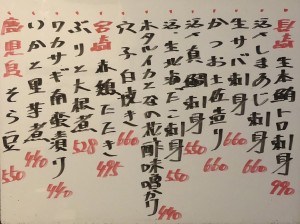 長崎 生本鮪トロ刺身 990
活〆しまあじ刺身 660
生サバ刺身 660
かつお土佐造り 660
活〆真鯛刺身 550
活〆生北海だこ刺身 550
ホタルイカと菜の花酢味噌がけ
穴子白焼き 660
宮崎 赤鶏たたき 495
ぶり大根煮 528
ワカサギ南蛮漬け 440
いかと里芋煮 440
鹿児島 そら豆 550